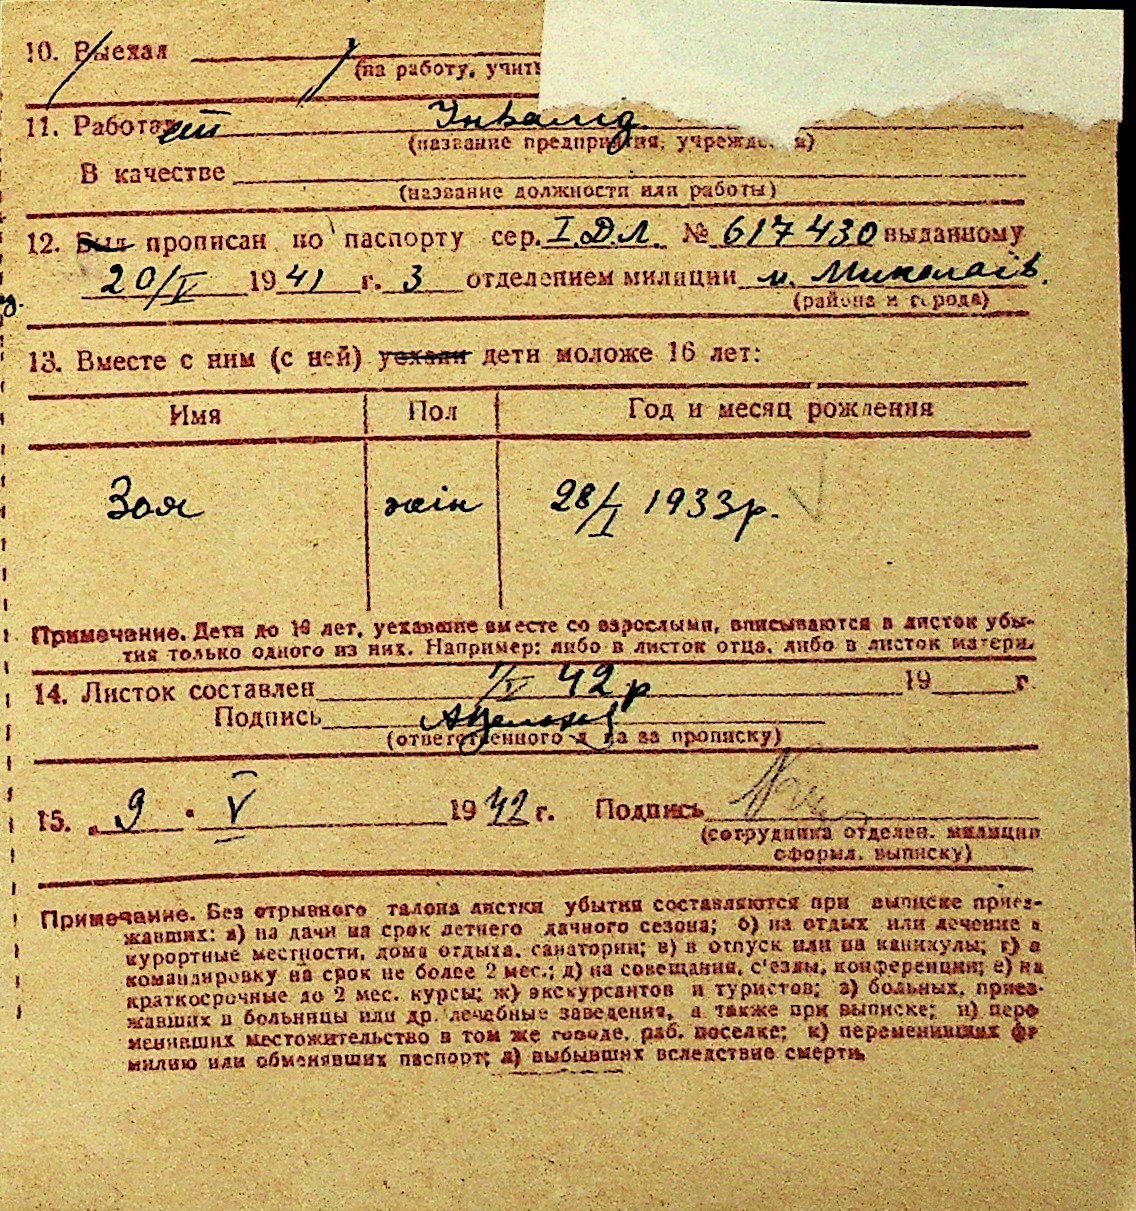 10. Выехал
(на работу, учить
11. Работает Інвалид
(название предприятия, учреждения)
В качестве
(название должности или работы)
12. Был прописан по паспорту сер. I ДЛ. № 617430 выданному
20/V 1941 г. 3 отделением милиции м. Миколаїв.
(района и города)
13. Вместе с ним (с ней) уехали дети моложе 16 лет:
Имя Пол Год и месяц рождения
Зоя жін 28/I 1933 р.
Примечание. Дети до 16 лет, уехавшие вместе со взрослыми, вписываются в листок убы-
тия только одного из них. Например: либо в листок отца, либо в листок матери.
14. Листок составлен 1/V 42 р 19 г.
Подпись
(ответственного л ца за прописку)
15. „9 " V 1942 г. Подпись
(сотрудника отделен. милиции
оформл. выписку)
Примечание. Без отрывного талона листки убытия составляются при выписке приез-
жавших: а) на дачи на срок летнего дачного сезона; б) на отдых или лечение в
курортные местности, дома отдыха, санатории; в) в отпуск или на каникулы; г) в
командировку на срок не более 2 мес.; д) на совещания, с'езды, конференции; е) на
краткосрочные до 2 мес. курсы; ж) экскурсантов и туристов; з) больных, приез-
жавших в больницы или др. лечебные заведения, а также при выписке; и) пере
менивших местожительство в том же городе, раб. поселке; к) переменивших фа
милию или обменявших паспорт; л) выбывших вследствие смерти.